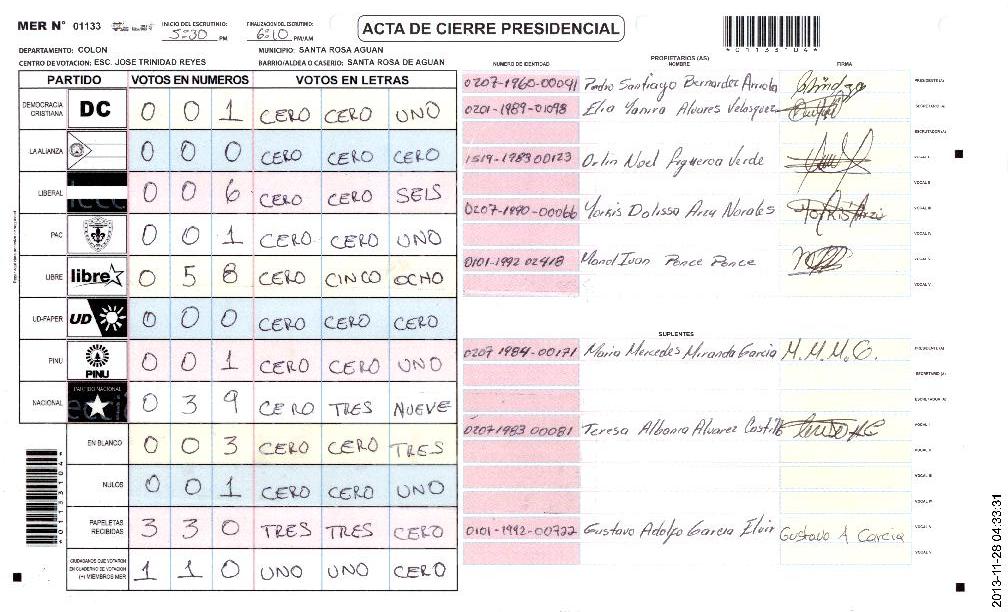 MER N° 01133
INICIO DEL ESCRUTINIO: 5:30 PM
FINALIZACION DEL ESCRUTINIO: 6:10 PM/AM
ACTA DE CIERRE PRESIDENCIAL
*01133104*
DEPARTAMENTO: COLON
MUNICIPIO: SANTA ROSA AGUAN
CENTRO DE VOTACION: ESC. JOSE TRINIDAD REYES
BARRIO/ALDEA O CASERIO: SANTA ROSA DE AGUAN
PARTIDO VOTOS EN NUMEROS VOTOS EN LETRAS
DEMOCRACIA CRISTIANA DC 0 0 1 CERO CERO UNO
LA ALIANZA 0 0 0 CERO CERO CERO
LIBERAL 0 0 6 CERO CERO SEIS
PAC 0 0 1 CERO CERO UNO
LIBRE libre 0 5 8 CERO CINCO OCHO
UD-FAPER UD 0 0 0 CERO CERO CERO
PINU PINU 0 0 1 CERO CERO UNO
NACIONAL PARTIDO NACIONAL 0 3 9 CERO TRES NUEVE
EN BLANCO 0 0 3 CERO CERO TRES
NULOS 0 0 1 CERO CERO UNO
PAPELETAS RECIBIDAS 3 3 0 TRES TRES CERO
CIUDADANOS QUE VOTARON EN CUADERNO DE VOTACION (+) MIEMBROS MER 1 1 0 UNO UNO CERO
*01133104*
PROPIETARIOS (AS)
NUMERO DE IDENTIDAD NOMBRE FIRMA
0207-1960-00091 Pedro Santiago Bernardez Arriola PRESIDENTE (A)
0201-1989-01098 Elia Yanira Alvares Velasquez SECRETARIO (A)
ESCRUTADOR (A)
1519-1983 00123 Orlin Noel Figueroa Verde VOCAL I
VOCAL II
0207-1990-00066 Yorkis Dalissa Arzu Norales VOCAL III
VOCAL IV
0101-1992 02418 Manol Ivan Ponce Ponce VOCAL V
SUPLENTES
0207 1984-00171 Maria Mercedes Miranda Garcia M.M.M.G. PRESIDENTE (A)
SECRETARIO (A)
ESCRUTADOR (A)
0207 1983 00081 Teresa Albania Alvarez Castillo VOCAL I
VOCAL II
VOCAL III
VOCAL IV
0101-1992-00722 Gustavo Adolfo Garcia Gustavo A Garcia VOCAL V
2013-11-28 04:33:31